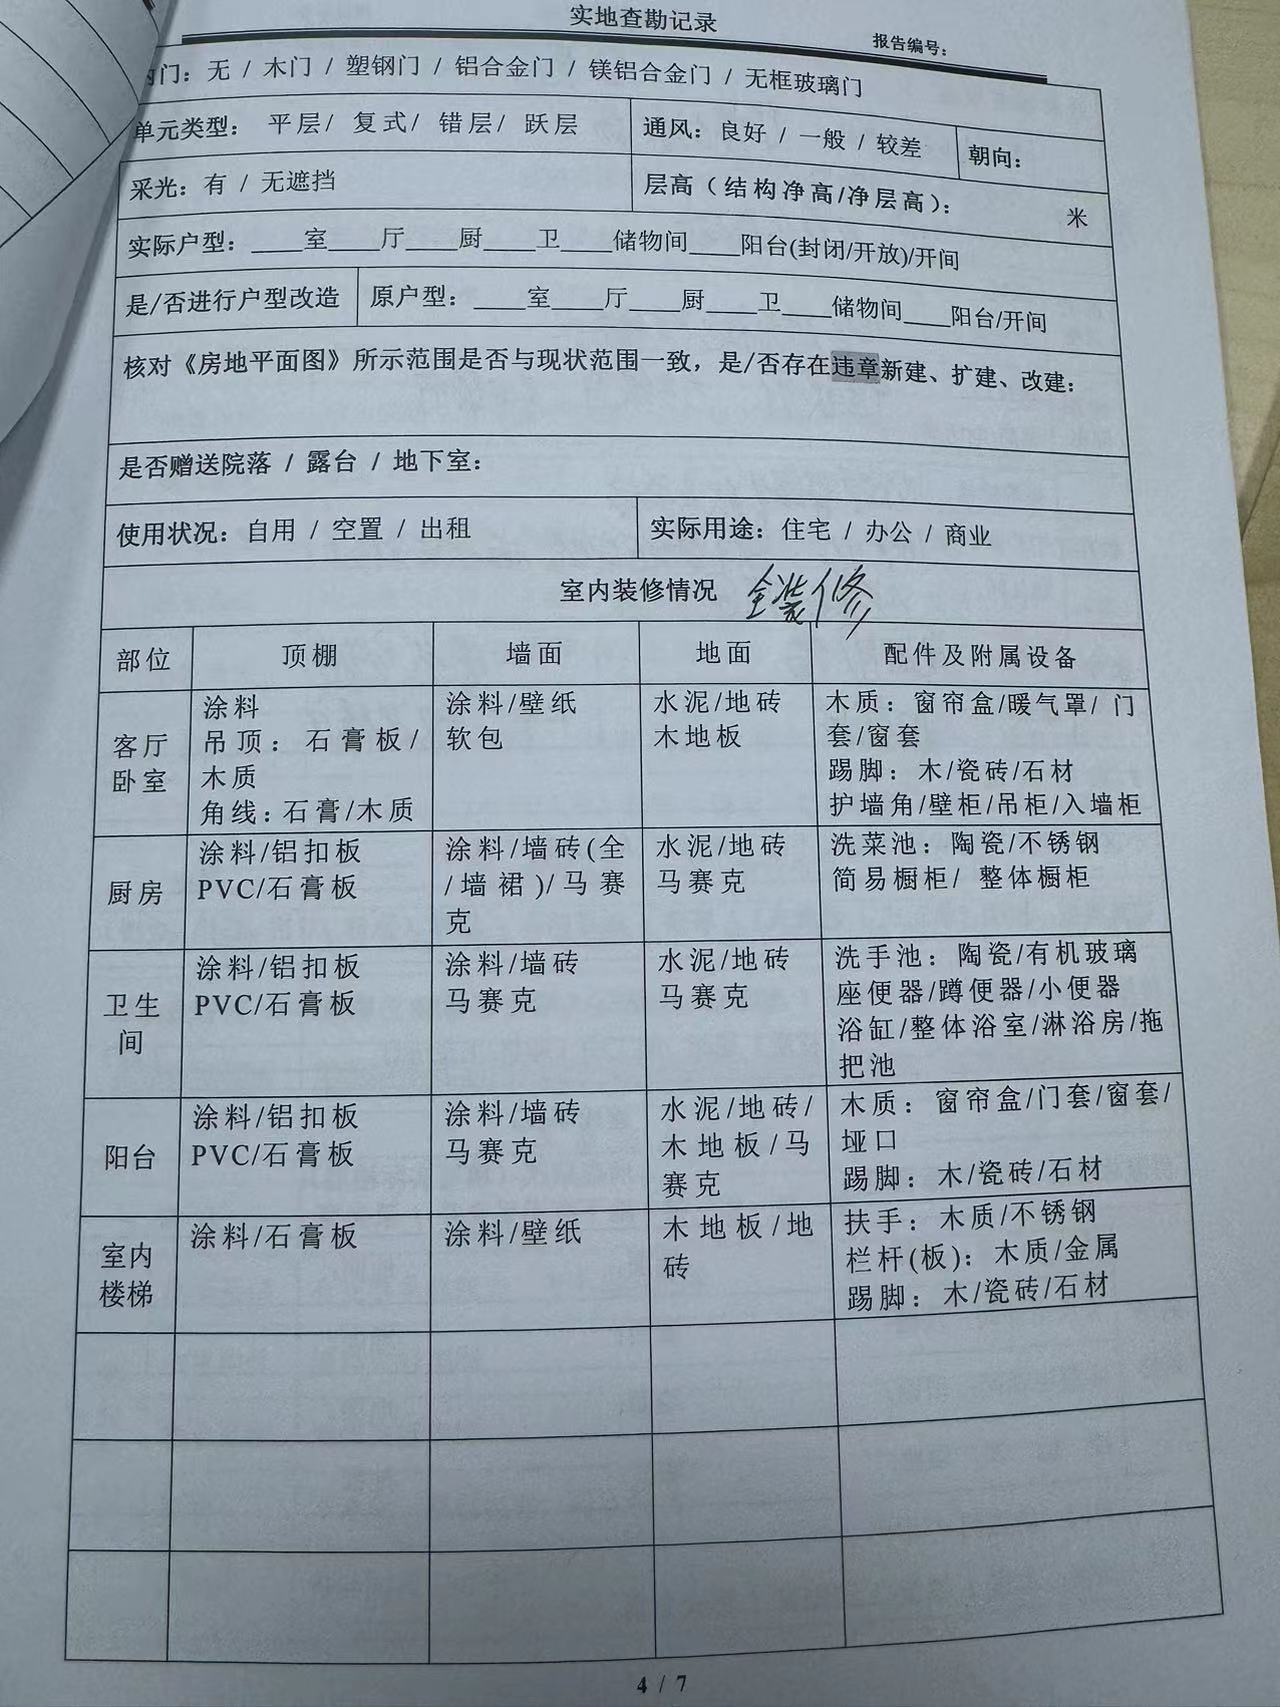 实地查勘记录
报告编号：
门：无 / 木门 / 塑钢门 / 铝合金门 / 镁铝合金门 / 无框玻璃门
单元类型： 平层/ 复式/ 错层/ 跃层
通风：良好 / 一般 / 较差
朝向：
采光：有 / 无遮挡
层高（结构净高/净层高）： 米
实际户型：____室____厅____厨____卫____储物间____阳台(封闭/开放)/开间
是/否进行户型改造
原户型：____室____厅____厨____卫____储物间____阳台/开间
核对《房地平面图》所示范围是否与现状范围一致，是/否存在违章新建、扩建、改建：
是否赠送院落 / 露台 / 地下室：
使用状况：自用 / 空置 / 出租
实际用途：住宅 / 办公 / 商业
室内装修情况 全装修
部位 顶棚 墙面 地面 配件及附属设备
客厅
卧室
涂料
吊顶：石膏板/
木质
角线：石膏/木质
涂料/壁纸
软包
水泥/地砖
木地板
木质：窗帘盒/暖气罩/ 门
套/窗套
踢脚：木/瓷砖/石材
护墙角/壁柜/吊柜/入墙柜
厨房
涂料/铝扣板
PVC/石膏板
涂料/墙砖(全
/墙裙)/马赛
克
水泥/地砖
马赛克
洗菜池：陶瓷/不锈钢
简易橱柜/ 整体橱柜
卫生
间
涂料/铝扣板
PVC/石膏板
涂料/墙砖
马赛克
水泥/地砖
马赛克
洗手池：陶瓷/有机玻璃
座便器/蹲便器/小便器
浴缸/整体浴室/淋浴房/拖
把池
阳台
涂料/铝扣板
PVC/石膏板
涂料/墙砖
马赛克
水泥/地砖/
木地板/马
赛克
木质：窗帘盒/门套/窗套/
垭口
踢脚：木/瓷砖/石材
室内
楼梯
涂料/石膏板
涂料/壁纸
木地板/地
砖
扶手：木质/不锈钢
栏杆(板)：木质/金属
踢脚：木/瓷砖/石材
4 / 7